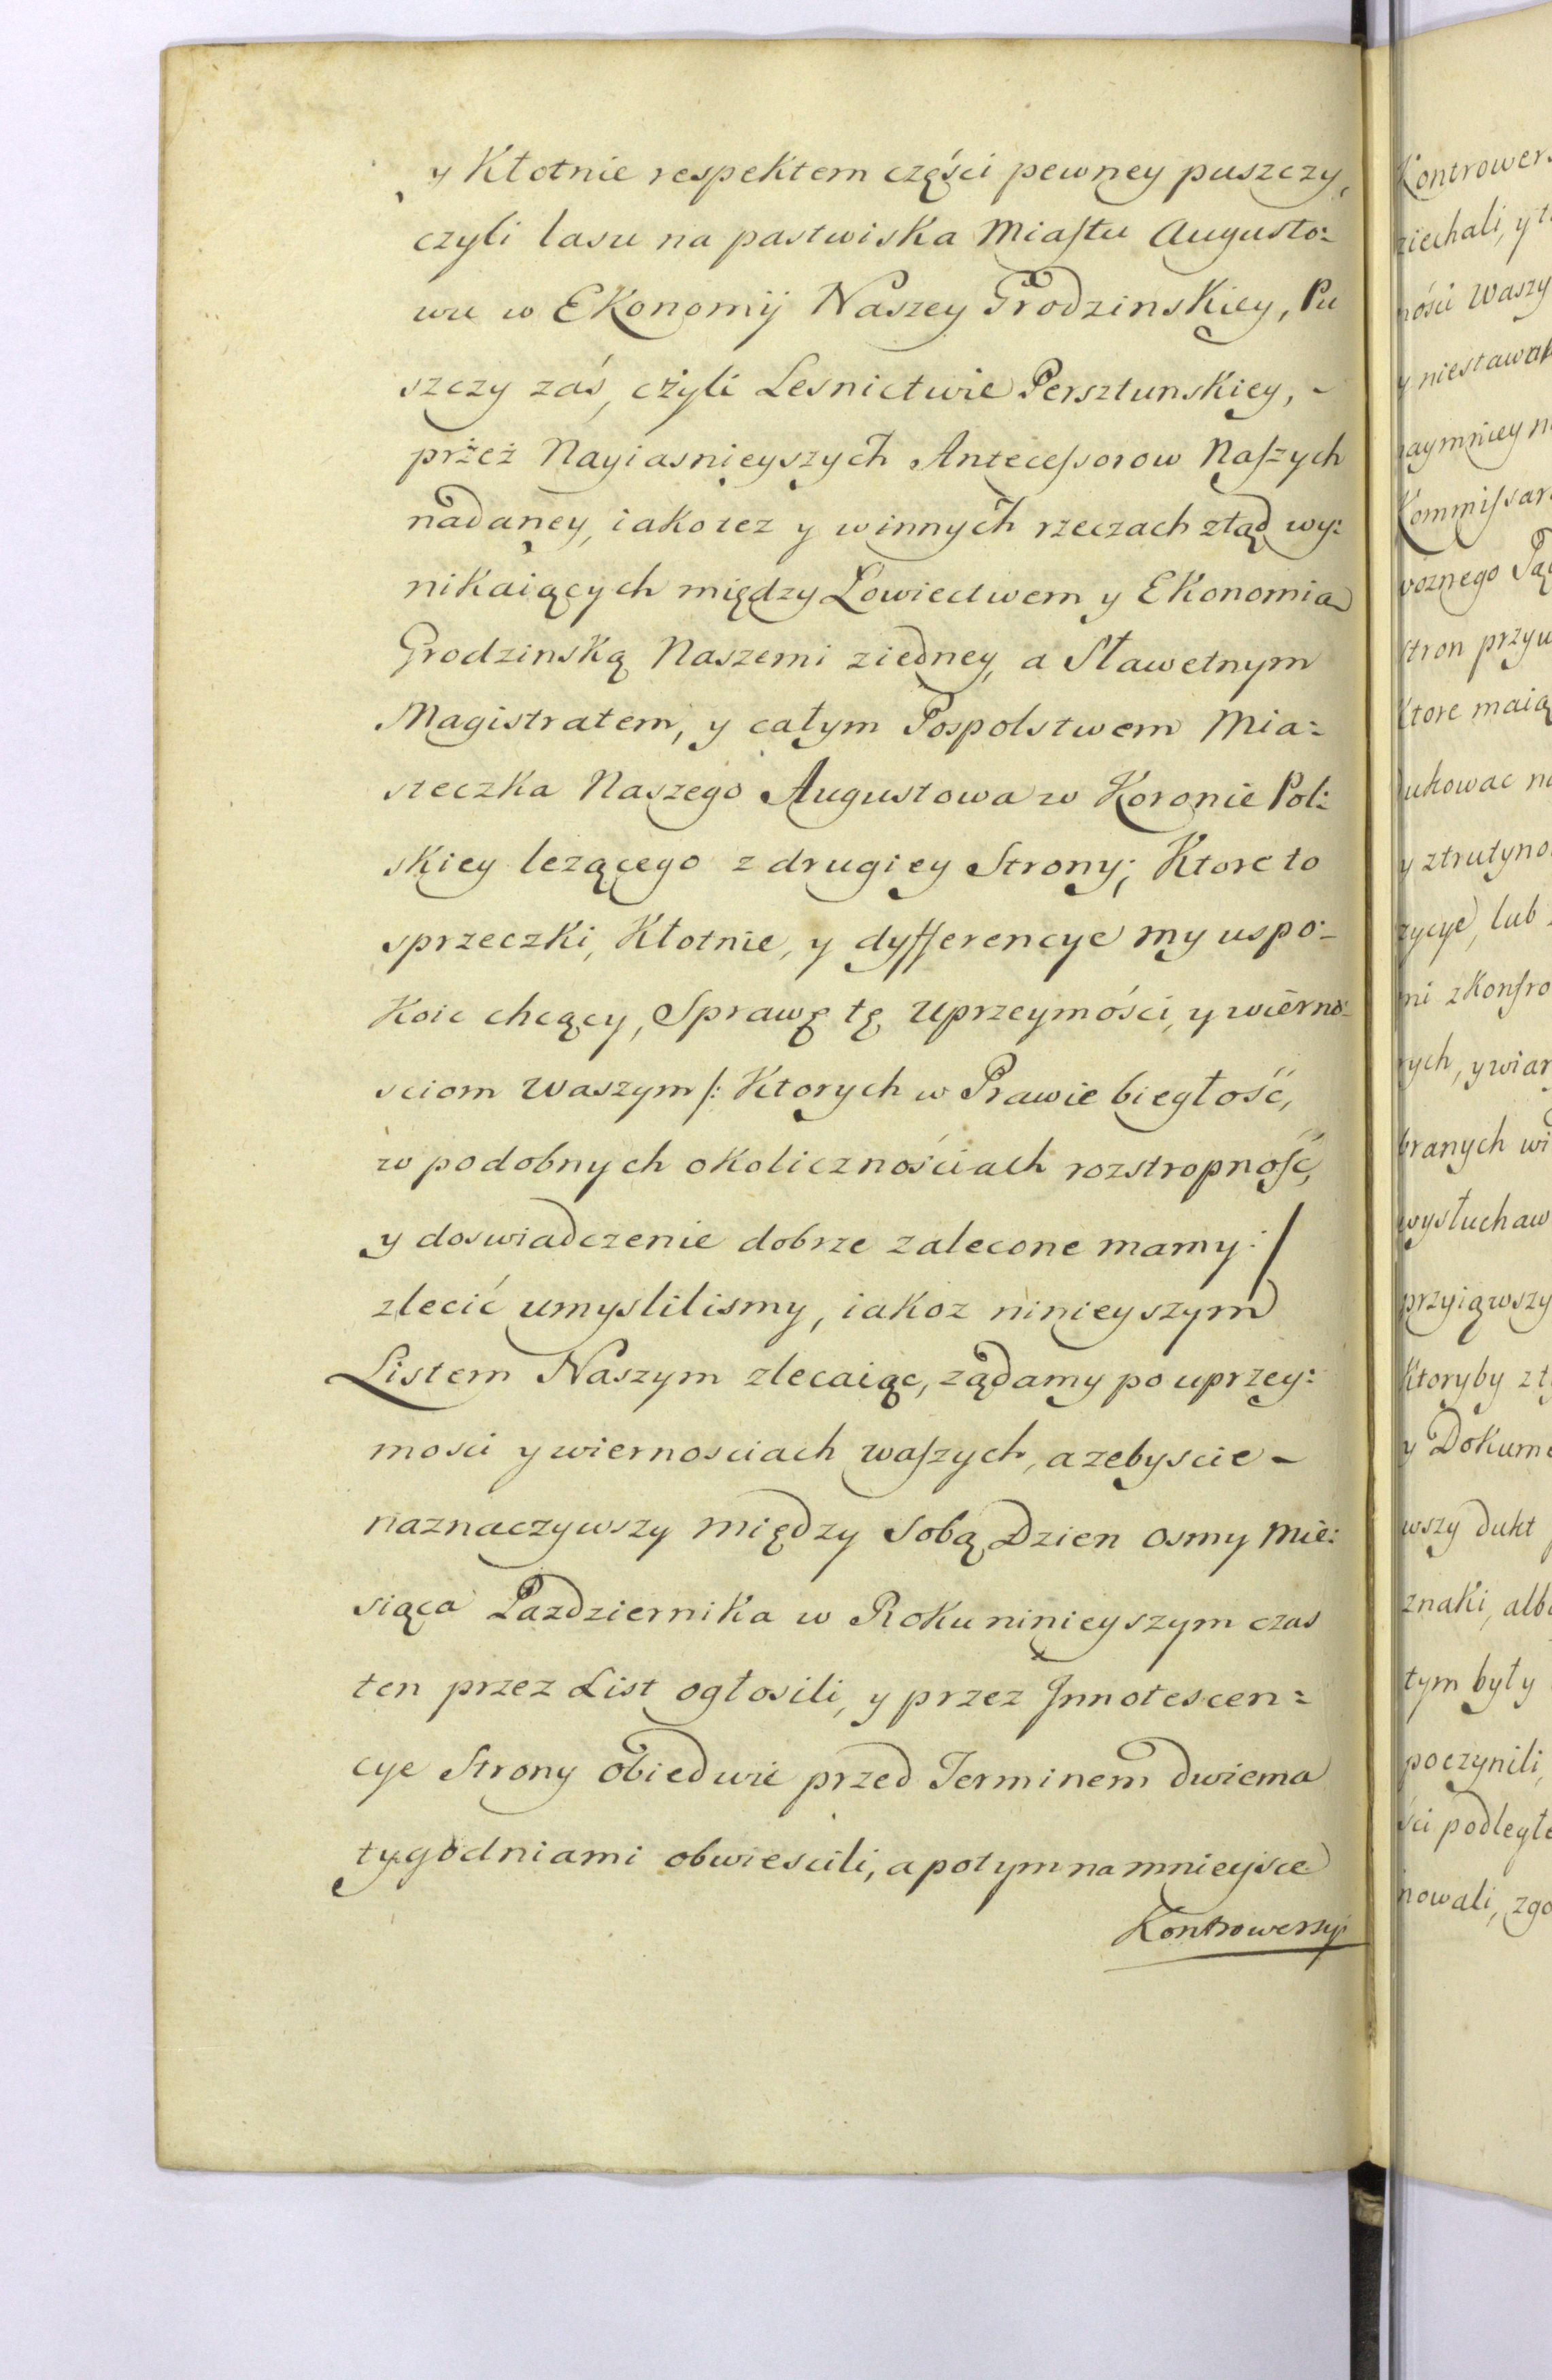 y Kłotnie respektem części pewney puszczy,
czyli lasu na pastwiska Miastu Augusto:
wu w Ekonomij Naszey Grodzinskiey, Pu
szczy zaś, cżyli Lesnictwie Persztunskiey, -
przeż Nayiasnieyszych Antecessorow Naszych
nadaney, iakotez y winnych rzeczach ztąd wy:
nikaiących między Łowiectwem y Ekonomia
Grodzinską Naszemi ziedney, a Sławetnym
Magistratem, y całym Pospolstwem Mia:
steczka Naszego Augustowa w Koronie Pol:
skiey leząçego z drugiey Strony; Ktore to
sprzeczki, Kłotnie, y dyfferencye my uspo:
Koic chcący, Sprawę tę Uprzeymości, y wierno:
sciom Waszym /: Ktorych w Prawie biegłość,
w podobnych okolicznościach rozstropność,
y doswiadczenie dobrze zalecone mamy :/
zlecić umyslilismy, iakoz ninieyszym
Listem Naszym zlecaiąc, ządamy po uprzey:
mosci y wiernosciach waszych, azebyscie -
naznaczywszy między Sobą Dzien osmy Mie:
siąca Pazdziernika w Roku ninieyszym czas
ten przez List ogłosili, y przez Jnnotescen:
cye Strony obiedwie przed Terminem dwiema
tygodniami obwiescili, a potym na mnieysce
Kontrowersyi
Kontrowers
ziechali, y t
ności Waszy
y niestawa
naymniey n
Kommissar
woznego
Stron przyw
Ktore maią
dukowac na
y ztrutyno
zycye, lub
mi zkonfro
rych, y wiar
branych wi
wysłuchaw
przyiąwszy
Ktoryby z t
y Dokume
wszy dukt
znaki, alb
tym były
poczynili,
ści podległe
nowali, zgo